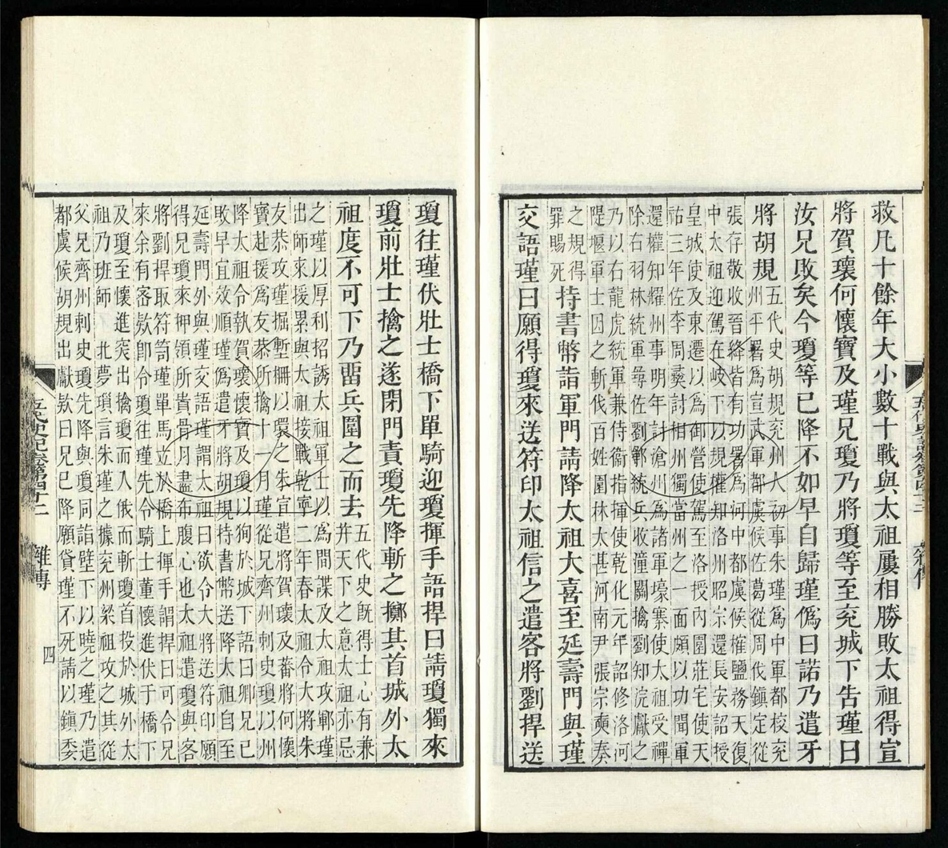 救凡十餘年大小數十戰與太祖屢相勝敗太祖得宣
將賀瓌何懷寶及瑾兄瓊乃將瓊等至兗城下告瑾曰
汝兄敗矣今瓊等已降不如早自歸瑾僞曰諾乃遣牙
將胡規
五代史胡規兗州人初事朱瑾爲中軍都校兗
州平署爲宣武軍都虞候佐葛從周伐鎮定從
張存敬收晉絳皆有功署爲河中都虞候權鹽務天復
中太祖迎駕在岐下以規權知洛州昭宗還長安詔授
皇城使及東遷以爲御營使駕至洛授內園莊宅使天
祐三年佐李周彝討相州獨當州之一面頗以功聞軍
還權知耀州事明年討滄州爲諸軍壕寨使太祖受禪
除右羽林統軍尋佐劉鄩統兵收潼關擒劉知浣獻之
乃以右龍虎統軍兼侍衞指揮使乾化元年詔修洛河
隄堰軍士因之斬伐百姓園林太甚河南尹張宗奭奏
之規得
罪賜死
持書幣詣軍門請降太祖大喜至延壽門與瑾
交語瑾曰願得瓊來送符印太祖信之遣客將劉捍送
瓊往瑾伏壯士橋下單騎迎瓊揮手語捍曰請瓊獨來
瓊前壯士擒之遂閉門責瓊先降斬之擲其首城外太
祖度不可下乃畱兵圍之而去
五代史旣得士心有兼
幷天下之意太祖亦忌
之瑾以厚利招誘太祖軍士以爲間諜及太祖攻鄆瑾
出師來援累與太祖接戰乾寧二年春太祖令大將朱
友恭攻瑾掘塹柵以環之朱宣遣將賀瓌及蕃將何懷
寶赴援爲友恭所擒十一月瑾從兄齊州刺史瓊以州
降太祖令執賀瓌懷寶及瓊以狥於城下語曰卿兄已
敗早宜效順瑾僞遣牙將胡規持書幣送降太祖自至
延壽門外與瑾交語瑾謂太祖曰欲令大將送符印願
得兄瓊來押領所貴骨月盡布腹心也太祖遣瓊與客
將劉捍取符笥瑾單馬立於橋上揮手謂捍曰可令兄
來余有密欵卽令瓊往瑾先令騎士董懷進伏于橋下
及瓊至懷進突出擒瓊而入俄而斬瓊首投於城外太
祖乃班師 北夢瑣言朱瑾之據兗州梁祖攻之其從
父兄齊州刺史瓊先降與瓊同詣壁下以曉之瑾乃遣
都虞候胡規出獻欵曰兄已降願貸瑾不死請以鎮委
五代史記卷第四十二 雜傳 四